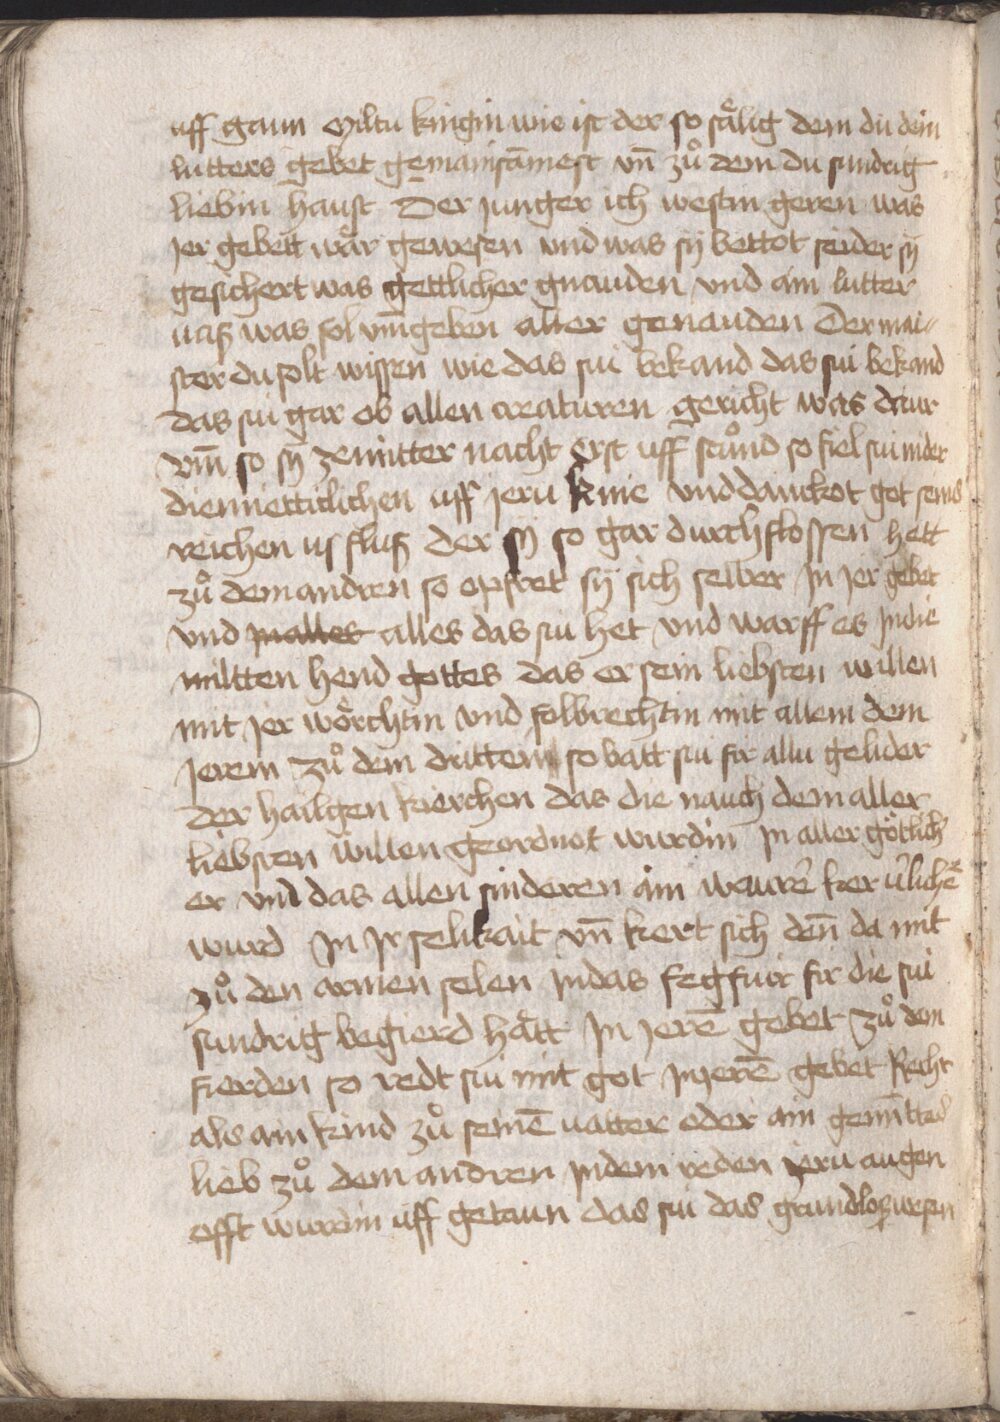 uff gaun Miltu kingin wie ist der so sälig dem du dein
lutters gebet gemainsāmest vn̄ zuͦ dem du sundrig
liebin haust Der junger ich westin geren was
jer gebett wär gewesen und was sÿ bettot seider sÿ
gesichert was gettlicher gnauden vnd ain lutter
uaß was fol vm̄geben aller genauden Der mai⸗
ster du solt wissen wie das sui bekand das sui bekand
das sui gar ob allen creaturen gericht was daur
vm̄ so sÿ ze mitter nacht erst uff stuͦnd so fiel sui nider
diemiettitlichen uff jeru knie vnd danckot got seins
reichen us fluß der sÿ so gar durchflossen hett
zuͦ dem andren so opfret sÿ sich selber jn jer gebet
vnd jn alles alles das sui het vnd warff es jn die
miltten hend gottes das er sein liebsten willen
mit jer wörchtin vnd folbrechtin mit allem dem
jerem zuͦ dem drittem so batt sui fir allu gelider
der hailgen kierchen das die nauch dem aller
liebsten willen geordnot wurdin jn aller götlich
er vnd das allen sinderen ain waurē ker ūlichē
wurd jn jr selikait vn̄ kert sich den̄ da mit
zuͦ den armen selen jn das fegfuir fir die sui
sundrig begierd hätt jn jerē gebet zuͦ dem
fierden so redt sui mit got jn jerē gebet Recht
als ain kind zuͦ seinē uatter oder ain gemītted
lieb zuͦ dem andren jn dem reden jeru augen
offt wurdin uff getaun das sui das grundlos wesen